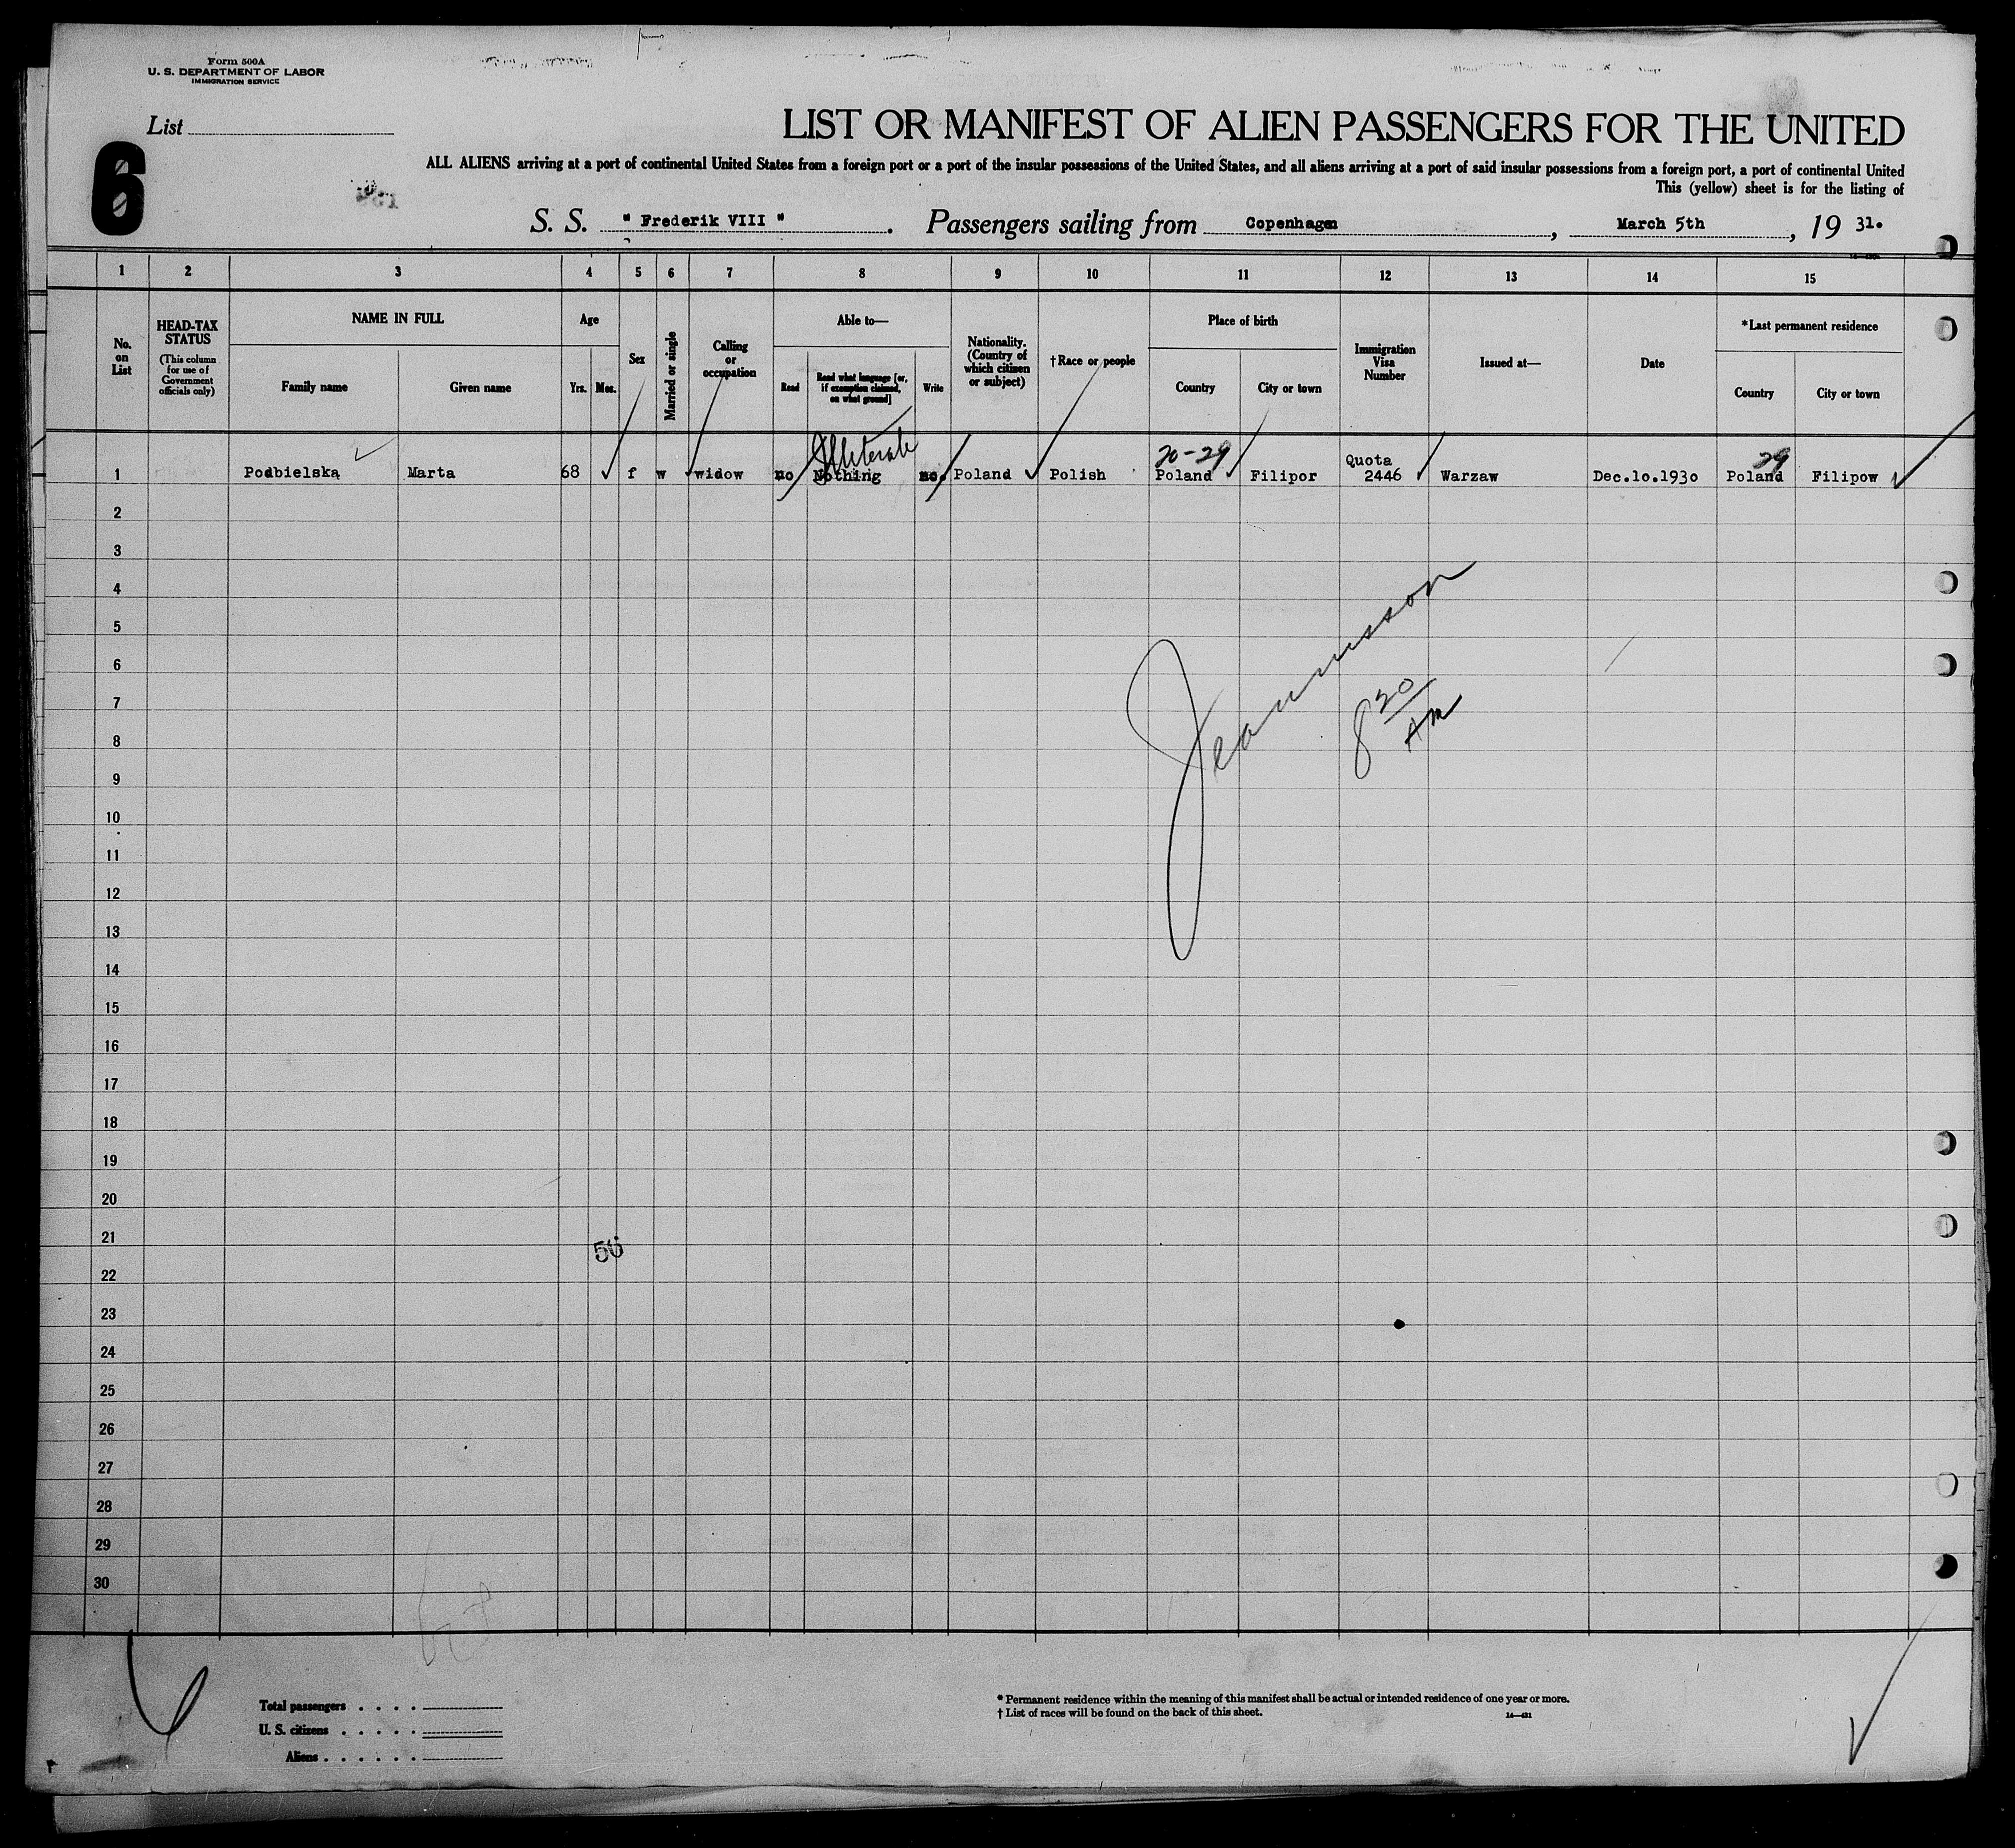 Form 500A
U. S. DEPARTMENT OF LABOR
IMMIGRATION SERVICE
List
6
LIST OR MANIFEST OF ALIEN PASSENGERS FOR THE UNITED
ALL ALIENS arriving at a port of continental United States from a foreign port or a port of the insular possessions of the United States, and all aliens arriving at a port of said insular possessions from a foreign port, a port of continental United
This (yellow) sheet is for the listing of
S. S. " Frederik VIII ". Passengers sailing from Copenhagen, March 5th, 19 31.
1 2 3 4 5 6 7 8 9 10 11 12 13 14 15
No. on List
HEAD-TAX STATUS
(This column for use of Government officials only)
NAME IN FULL
Family name
Given name
Age
Yrs.
Mos.
Sex
Married or single
Calling or occupation
Able to—
Read
Read what language [or, if exemption claimed, on what ground]
Write
Nationality. (Country of which citizen or subject)
†Race or people
Place of birth
Country
City or town
Immigration Visa Number
Issued at—
Date
*Last permanent residence
Country
City or town
Illiterate
20-29
29
Quota
1 Podbielska Marta 68 f w widow no Nothing no. Poland Polish Poland Filipor 2446 Warzaw Dec.10.1930 Poland Filipow
2
3
4
5
6
7
8
9
10
11
12
13
14
15
16
17
18
19
20
21
22
23
24
25
26
27
28
29
30
8 20
AM
56
Total passengers
U. S. citizens
Aliens
* Permanent residence within the meaning of this manifest shall be actual or intended residence of one year or more.
† List of races will be found on the back of this sheet.